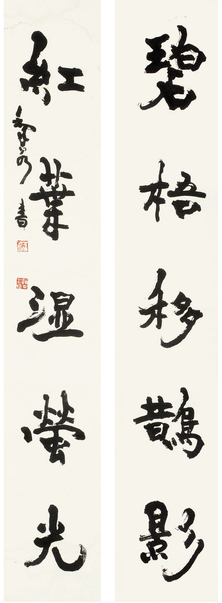 碧梧移鵲影
紅葉湿螢光
書